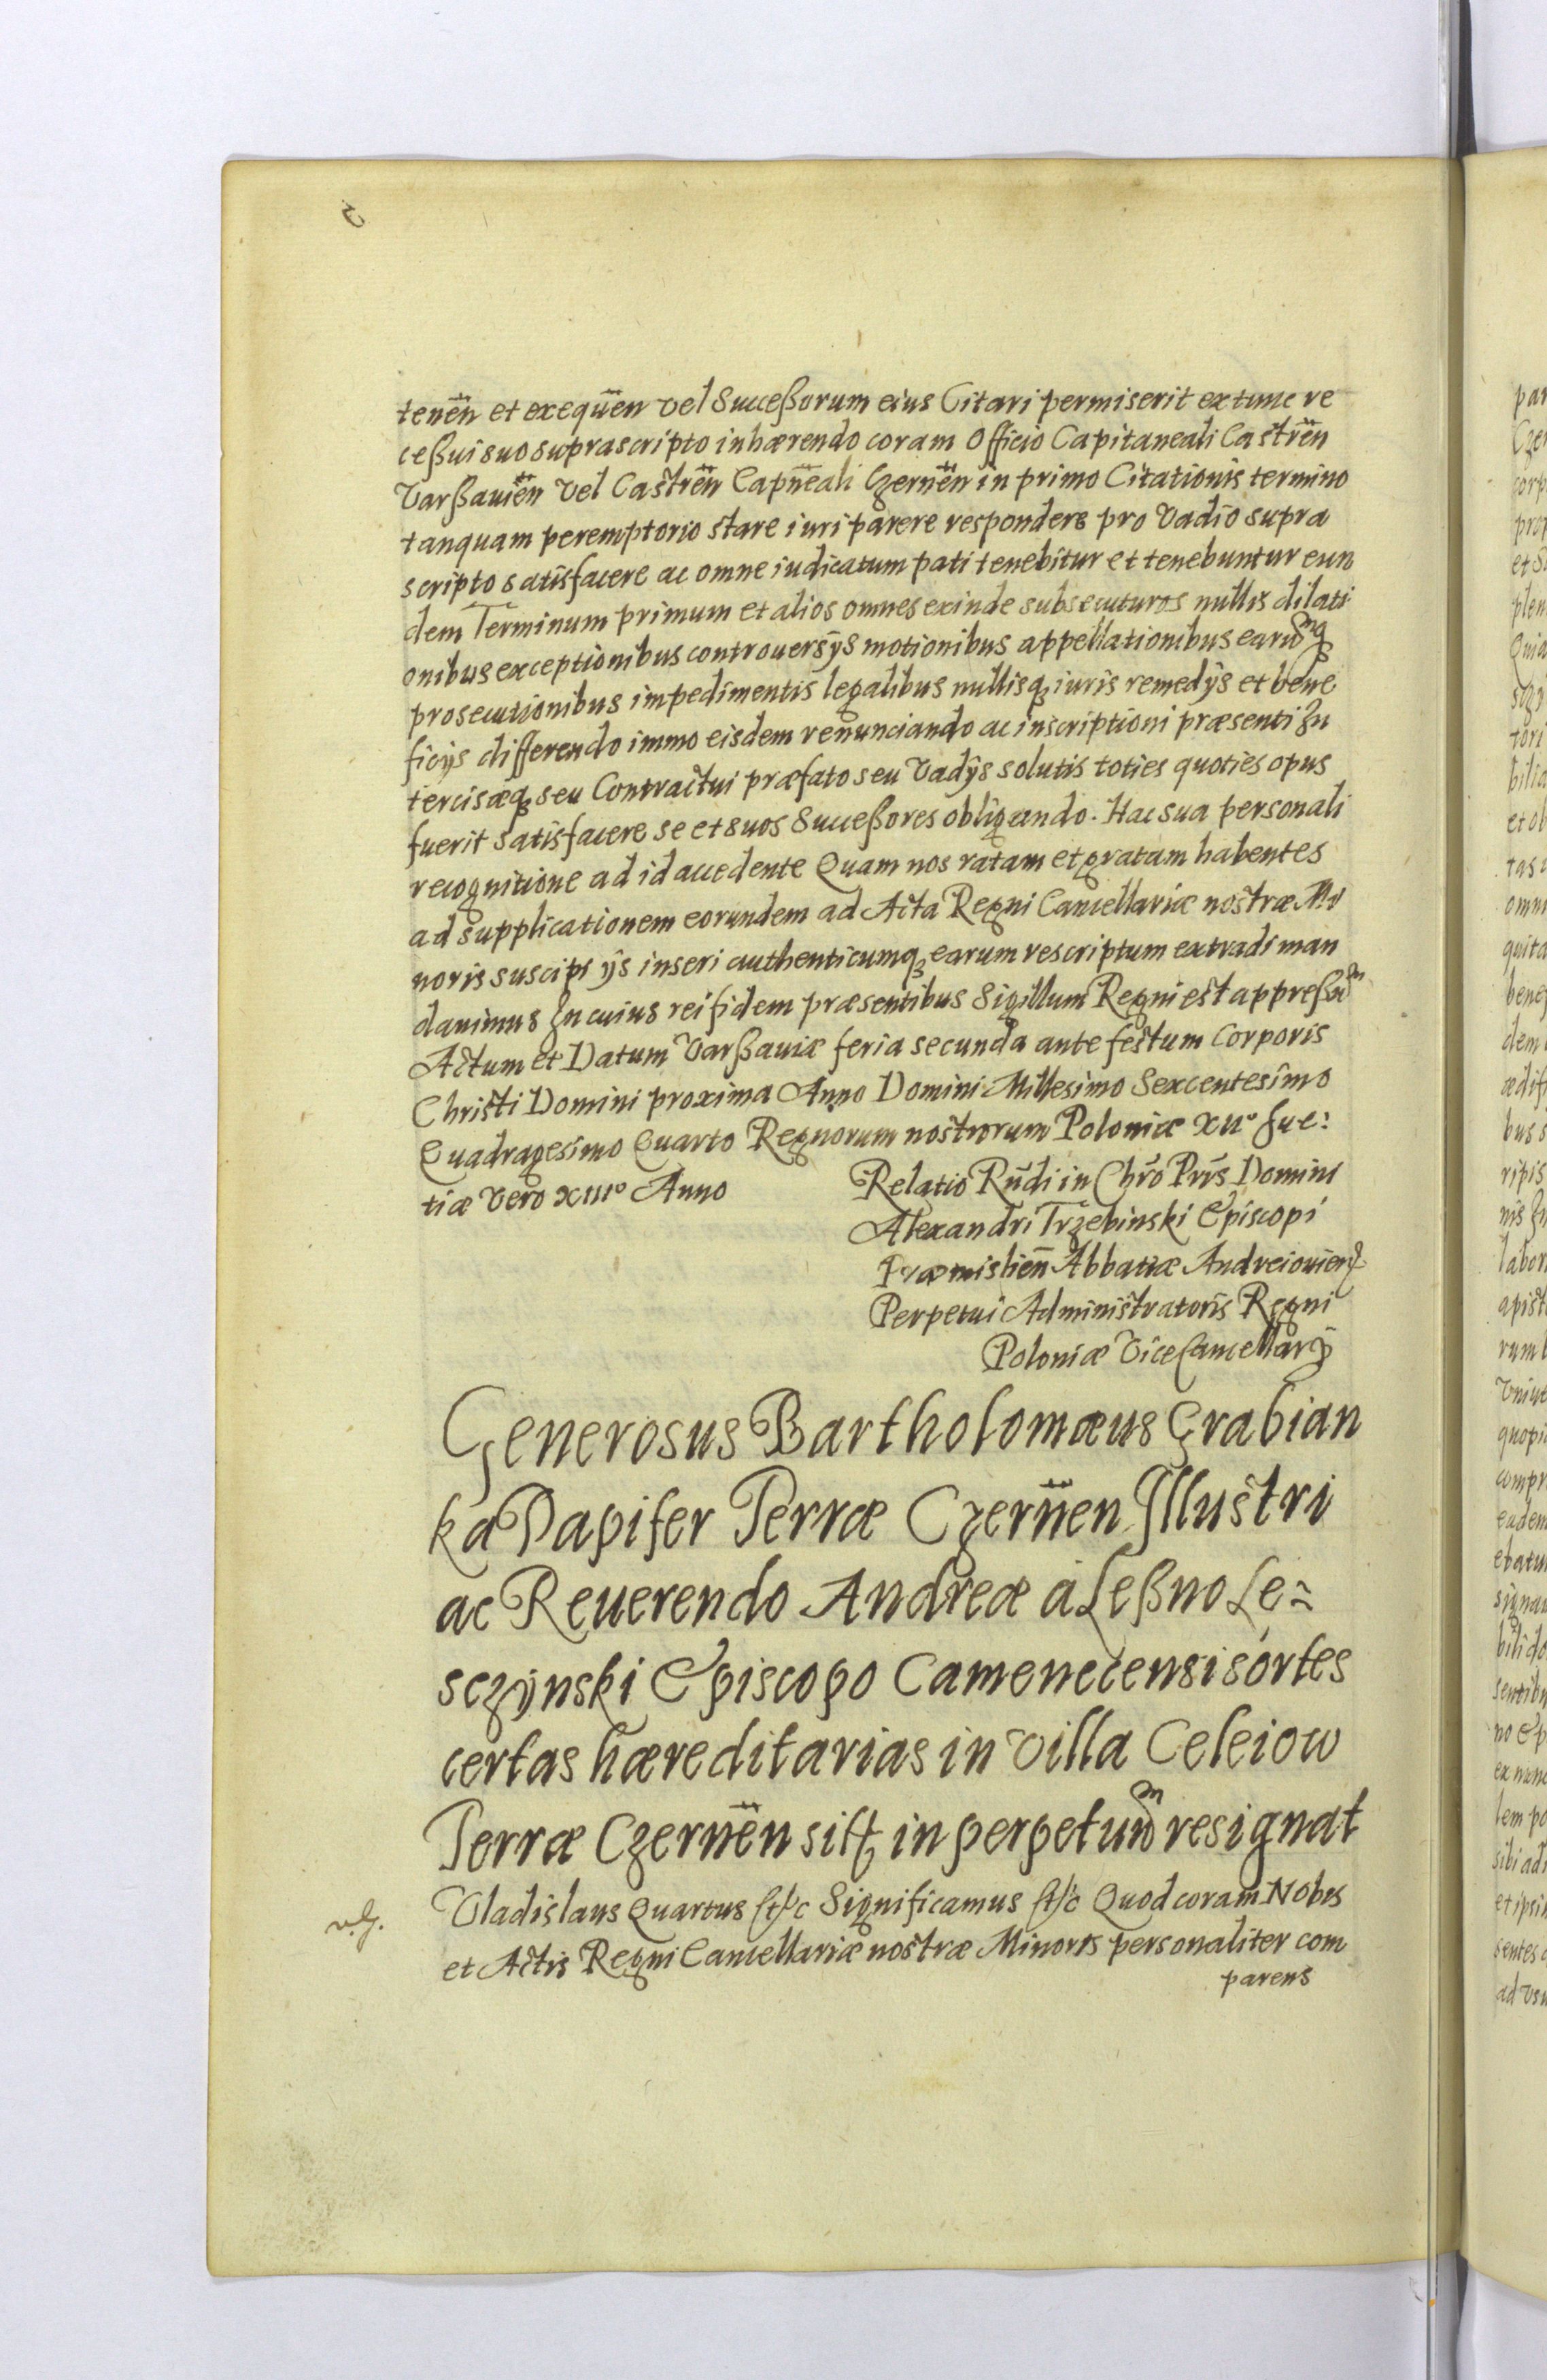 tenen̄ et exequen̄ vel Succeßorum eius Citari permiserit ex tunc re
ceßui suo suprascripto inhærendo coram Officio Capitaneali Castren̄
Varßauien̄ vel Castren̄ Capn̄eali Czernen̄ in primo Citationis termino
tanquam peremptorio stare iuri parere respondere pro Vadio supra
scripto satisfacere ac omne iudicatum pati tenebitur et tenebuntur eun
dem Terminum primum et alios omnes exinde subsecuturos nullis dilati
onibus exceptionibus controuersijs motionibus appellationibus earumq
prosecutionibus impedimentis legalibus nullisq iuris remedijs et bene
ficijs differendo immo eisdem renunciando ac inscriptioni præsenti In
tercisæq seu Contractui præfato seu Vadijs solutis toties quoties opus
fuerit satisfacere se et suos Succeßores obligando. Hac sua personali
recognitione ad id accedente Quam nos ratam et gratam habentes
ad supplicationem eorundem ad Acta Regni Cancellariæ nostræ Mi
noris suscipi ijs inseri authenticumq earum rescriptum extradi man
dauimus In cuius rei fidem præsentibus Sigillum Regni est appreßum
Actum et Datum Varßauiæ feria secunda ante festum Corporis
Christi Domini proxima Anno Domini Millesimo Sexcentesimo
Quadragesimo Quarto Regnorum nostrorum Poloniæ XII° Sue:
tiæ Vero XIII° Anno
Relatio Rn̄di in Chr̄o Pr̄is Domini
Alexandri Trzebinski Episcopi
Præmislien̄ Abbatiæ Andreiouien
Perpetui Administratoris Regni
Poloniæ ViceCancellarij
Generosus Bartholomæus Grabian
ka Dapifer Terræ Czernen̄ Illustri
ac Reuerendo Andreæ a Leßno Le=
sczÿnski Episcopo Camenecensi sortes
certas hæreditarias in Villa Celeiow
Terræ Czernen̄ sitt in perpetuum resignat
Vladislaus Quartus etc Significamus etc Quod coram Nobis
et Actis Regni Cancellariæ nostræ Minoris personaliter com
parens